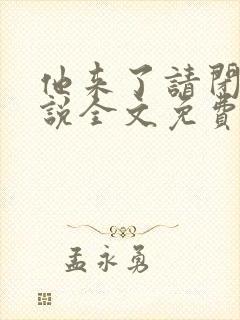 他来了請閉
說全文免費
孟永勇